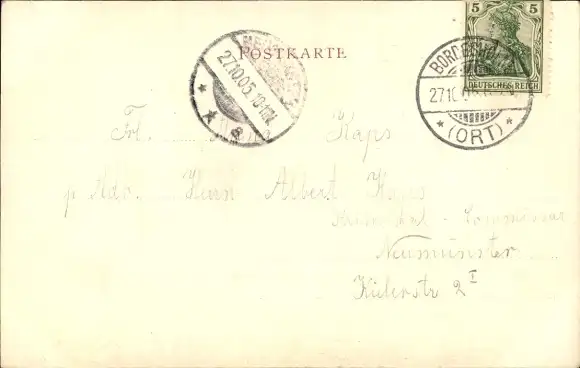 POSTKARTE
5 5
DEUTSCHES REICH
27.10.05.10-11V.
BORDESH
27.10
(ORT)
Frl. Kaps
p. Adr. Herrn Albert Kaps
Commissar
Neumünster
Kielerstr 2 I